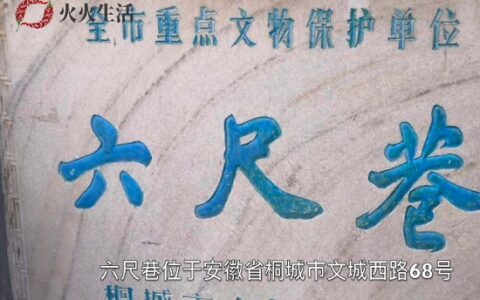 火火生活
全市重点文物保护单位
六尺巷
六尺巷位于安徽省桐城市文城西路68号
桐城市